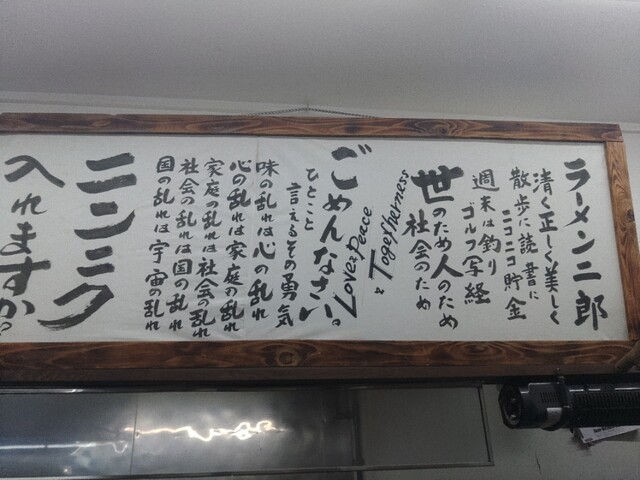 ラーメン二郎
清く正しく美しく
散歩に読書に
ニコニコ貯金
週末は釣り
ゴルフ写経
世のため人のため
社会のため
Love&Peace
&Togetherness
ごめんなさい。
ひとこと
言えるその勇気
味の乱れは心の乱れ
心の乱れは家庭の乱れ
家庭の乱れは社会の乱れ
社会の乱れは国の乱れ
国の乱れは宇宙の乱れ
ニンニク
入れますか?